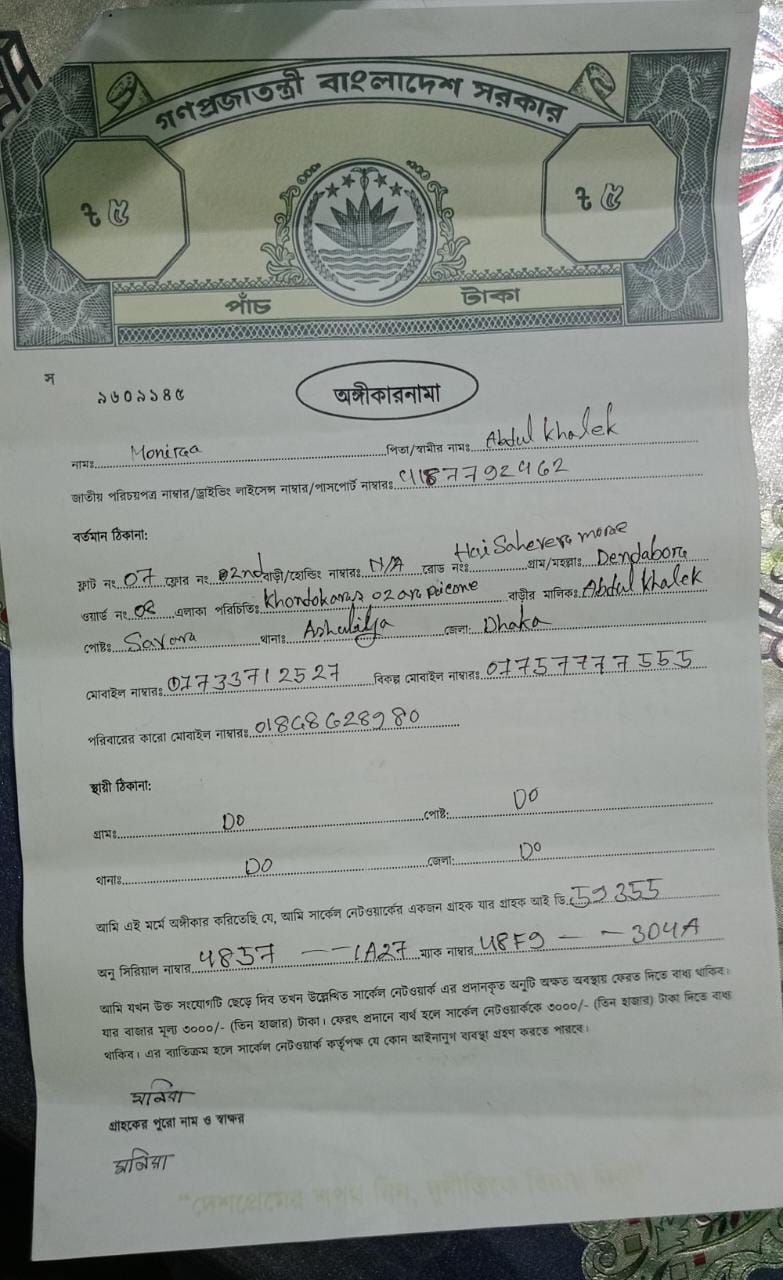 গণপ্রজাতন্ত্রী বাংলাদেশ সরকার
৳ ৫ ৳ ৫
পাঁচ টাকা
স
৯৬০৯৯৪৫ অঙ্গীকারনামা
নামঃ Monira পিতা/স্বামীর নামঃ Abdul Khalek
জাতীয় পরিচয়পত্র নাম্বার/ড্রাইভিং লাইসেন্স নাম্বার/পাসপোর্ট নাম্বারঃ
বর্তমান ঠিকানা:
ফ্লাট নং 07 ফ্লোর নং 02nd বাড়ী/হোল্ডিং নাম্বারঃ N/A রোড নংঃ গ্রাম/মহল্লাঃ Dendabora
ওয়ার্ড নং 02 এলাকা পরিচিতিঃ বাড়ীর মালিকঃ Abdul Khalek
পোষ্টঃ Savar থানাঃ Ashuliya জেলা: Dhaka
মোবাইল নাম্বারঃ 07733712527 বিকল্প মোবাইল নাম্বারঃ 07757777555
পরিবারের কারো মোবাইল নাম্বারঃ
স্থায়ী ঠিকানা:
গ্রামঃ DO পোষ্ট: DO
থানাঃ DO জেলা: DO
আমি এই মর্মে অঙ্গীকার করিতেছি যে, আমি সার্কেল নেটওয়ার্কের একজন গ্রাহক যার গ্রাহক আই ডি 59355
অনু সিরিয়াল নাম্বার 4857 --1A27 ম্যাক নাম্বার 48F9 - - 304A
আমি যখন উক্ত সংযোগটি ছেড়ে দিব তখন উল্লেখিত সার্কেল নেটওয়ার্ক এর প্রদানকৃত অনুটি অক্ষত অবস্থায় ফেরত দিতে বাধ্য থাকিব।
যার বাজার মূল্য ৩০০০/- (তিন হাজার) টাকা। ফেরৎ প্রদানে ব্যর্থ হলে সার্কেল নেটওয়ার্ককে ৩০০০/- (তিন হাজার) টাকা দিতে বাধ্য
থাকিব। এর ব্যতিক্রম হলে সার্কেল নেটওয়ার্ক কর্তৃপক্ষ যে কোন আইনানুগ ব্যবস্থা গ্রহণ করতে পারবে।
মনিরা
গ্রাহকের পুরো নাম ও স্বাক্ষর
মনিরা